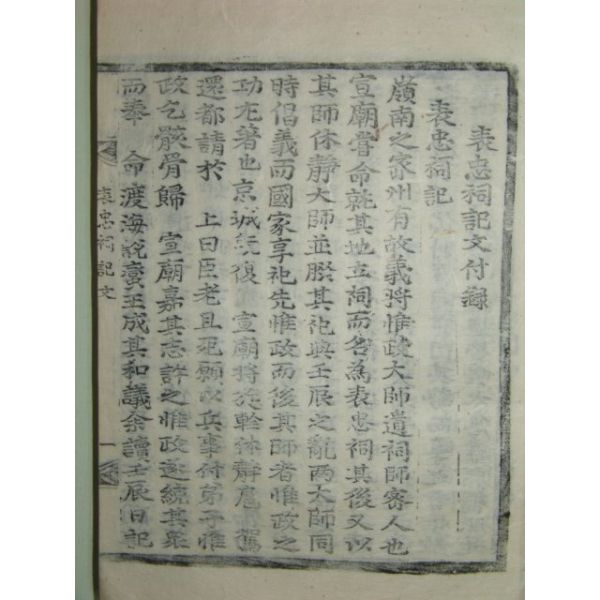 表忠祠記文付錄
表忠祠記
嶺南之密州有故義將惟政大師遺祠師密人也
宣廟嘗命就其地立祠而名為表忠祠其後又以
其師休靜大師並腏其祀與壬辰之亂兩大師同
時倡義而國家享祀先惟政而後其師者惟政之
功尤著也京城旣復 宣廟將旋軫休靜扈駕
還都請於 上曰臣老且死願以兵事付弟子惟
政乞骸骨歸 宣廟嘉其志許之惟政遂統其衆
而奉 命渡海說蠻王成其和議余讀壬辰日記
表忠祠記文 一